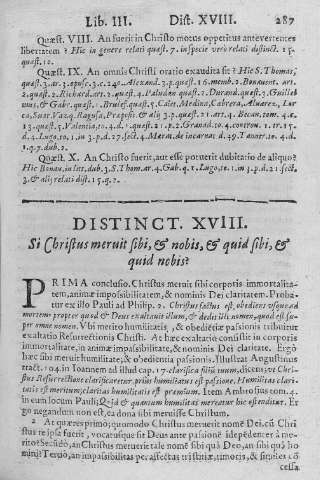 Lib. III. Dist. XVIII. 287
Quæst. VIII. An fuerit in Christo motus oppetitus antevertentes
libertatem? Hic in genere relati quæst. 7. in specie verò relati distinct. 15.
quæst. 10.
Quæst. IX. An omnis Christi oratio exaudita sit? Hic S. Thomas,
quæst. 3. ar. 3. opusc. 3. c. 240. Alexand. 3. p. quæst. 16. Bonavent. art.
2. quæst. 2. Richard. art. 2. quæst. 4. Paludan quæst. 2. Durand. quæst. 3. Guillel
mus, & Gabr. quæst. Caiet. Medina, Cabrera, Aluarez, Lor
ca, Suar. Vazq. Ragusa, & alij 3. p. quæst. 21. art. 4. Becan. tom. 4. c.
13. quæst. 5. Valentia, to. 4. d. 1. quæst. 21. p. 2. Granad. to. 4. controu. 1. tr. 15.
d. 4. Lugo, to. 1. in 3. p. d. 27. sect. 4. Marat. de incarnat. d. 49. Tanner. to. 4. d.
1. q. 7. dub. 2.
Quæst. X. An Christo fuerit, aut esse potuerit dubitatio de aliquo?
Hic Bonau. in lect. dub. 3. S. Thom. ar. 4. Gab. q. 1. Lugo, to. 1. in 3. p. d. 21. sect.
3. & alij relati dist. 15. q. 2.
DISTINCT. XVIII.
Si Christus meruit sibi, & nobis, & quid sibi, &
quid nobis?
PRIMA conclusio. Christus meruit sibi corporis immortalita-
tem, animæ impassibilitatem, & nominis Dei claritatem. Proba-
tur ex illo Pauli ad Philip. 2. Christus factus est, obediens vsque ad
mortem: propter quod & Deus exaltauit illum, & dedit illi nomen, quod est su-
per omne nomen. Vbi merito humilitatis, & obedientiæ passionis tribuitur
exaltatio Resurrectionis Christi. At hæc exaltatio consistit in corporis
immortalitate, in animæ impassibilitate, & nominis Dei claritate. Ergò
hæc sibi meruit humilitate, & obedientia passionis. Illustrat Augustinus
tract. 104. in Ioannem ad illud cap. 17. clarifica filiũ tuum, dicens; vt Chri-
stus Resurrectione clarificaretur, priùs humilitatus est passione. Humilitas clari-
tatis est meritum; claritas humilitatis est præmium. Item Ambrosius tom. 4.
in eum locum Pauli; Quid & quantum humilitas mereatur hic ostenditur. Et
ego negandum non est, ea dona sibi meruisse Christum.
2 At quæres primò; quomodo Christus meruerit nomẽ Dei, cũ Chri
stus re ipsa fuerit, vocatusque sit Deus ante passionẽ idẽpẽdenter à me-
rito? Secũdò, an Christus meruerit tale nomẽ sibi quà Deo, an sibi quà ho
mini? Tertiò, an impassibilitas per affectus tristitiæ, timoris, & similes cũ
cessa.